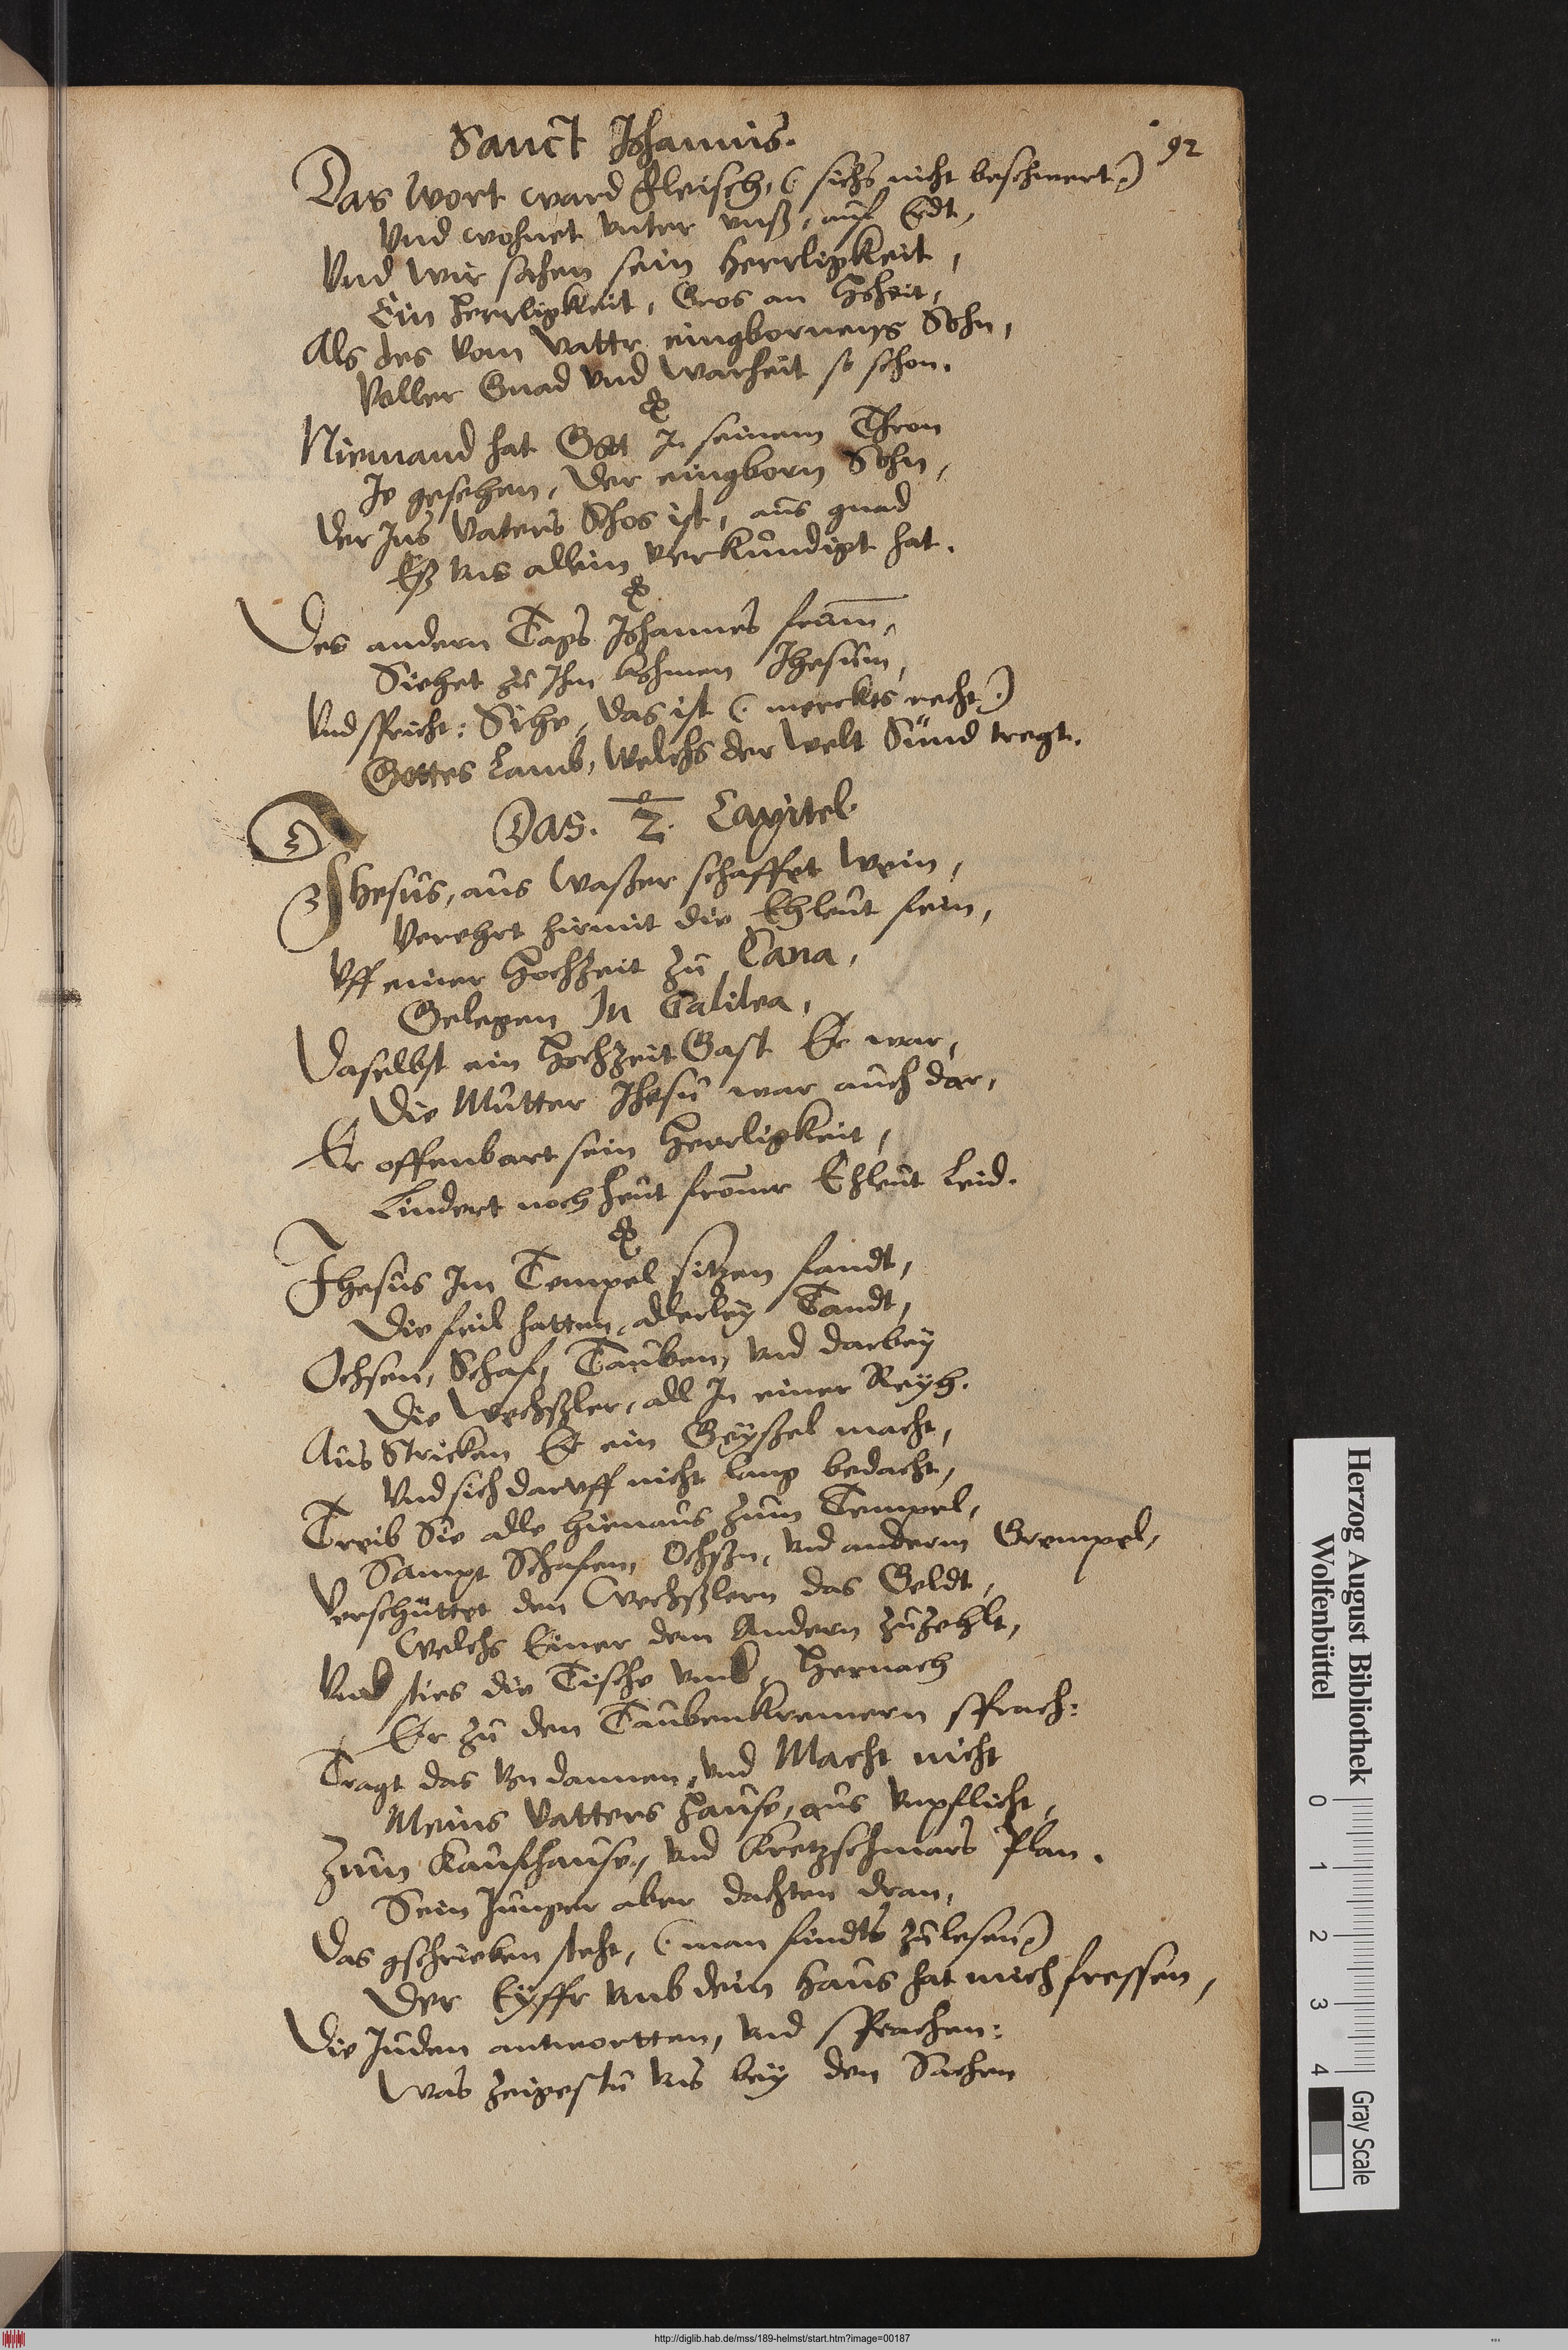 Sanct Johannis.
92
Das wort ward fleisch, (: sichs nicht beschwert:)
Vnd wohnet vnter vnß, auf Erdt,
Vnd wir sahen sein Herrligkeit,
Ein Herrligkeit, Gros an Hoheit,
Als des vom Vattr eingbornens Sohn,
Voller Gnad vnd Warheit so schon.
Niemand hat Gott In seinem Thron
Je gesehen, Der eingborn Sohn,
Der Ins Vaters Schos ist, aus gnad
Eß vns allein verkündigt hat.
Des andern Tags Johannes
Siehet zu Ihm kohmen Jhesum,
Vnd spricht: Sihe, das ist (: merckts recht:)
Gottes Lamb, Welchs der Welt Sünd tregt.
Das. 2. Capitel.
Jhesus, aus Waßer schaffet Wein,
Verehrt hirmit die Ehleut fein,
Vff einer Hochzeit zu Cana,
Gelegen In Galilea,
Daselbst ein Hochzeit Gast Er war,
Die Mutter Jhesu war auch dar,
Er offenbart sein Herrligkeit,
Lindert noch heut from̄er Ehleut Leid.
Jhesus Im Tempel sitzen fandt,
Die feil hatten, allerley Tandt,
Ochsen, Schaf, Tauben, vnd darbey
Die Wechßler, all In einer Reyh.
Aus Stricken Er ein Geyßel macht,
Vnd sich daruff nicht lang bedacht,
Treib Sie alle hienaus zum Tempel,
Sampt Schafen, Ochßn, vnd anderm Grempel,
Verschüttet den Wechßlern das Geldt,
Welchs Einer dem Andern zuzehlt,
Vnd sties die Tische vmb, Hernach
Er zu den Taubenkremern sprach:
Tragt das von dannen, vnd Macht nicht
Meins Vatters Hause, aus vnpflicht,
Zum Kaufhause, vnd Kretzschmars Plan.
Sein Junger aber dachten dran,
Das gschrieben steht, (: man findts zulesen:)
Der Eyffr vmb dein Haus hat mich fressen,
Die Juden antwortten, vnd sprachen:
Was zeigestu vns bey den Sachen
Herzog August Bibliothek
Wolfenbüttel
0 1 2 3 4
Gray Scale
http://diglib.hab.de/mss/189-helmst/start.htm?image=00187